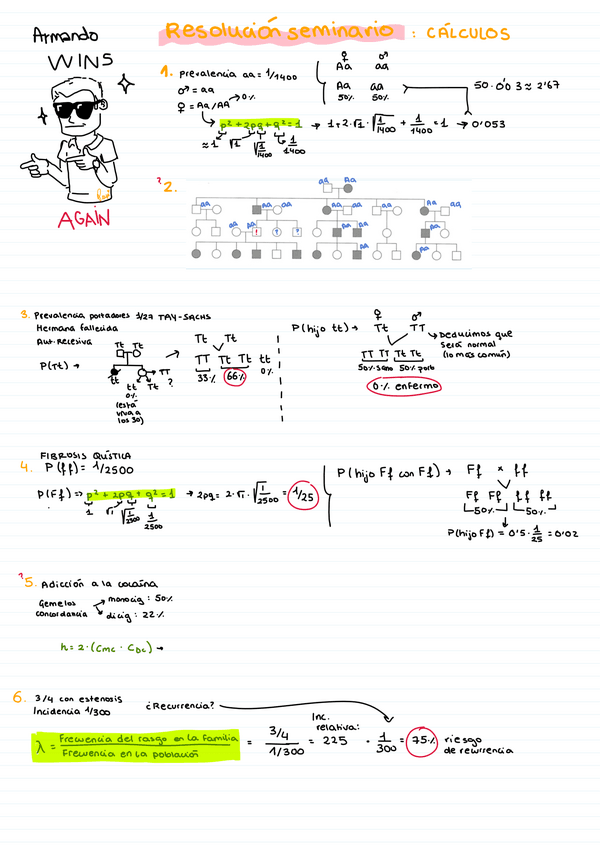 Armando
WINS
AGAIN
Resolución seminario : CÁLCULOS
1. Prevalencia aa = 1/1400
♂ = aa
♀ = Aa/AA → 0%
p² + 2pq + q² = 1 → 1 + 2·√1·√1/1400 + 1/1400 = 1 → 0'053
≈1 √1 √1/1400 1/1400
♀ ♂
Aa aa
Aa aa
50% 50%
50·0'0 3 ≈ 2'67
?2.
aa Aa
aa aa aa aa aa Aa aa
aa Aa ! ? ? Aa Aa Aa
aa
3. Prevalencia portadores 1/27 TAY-SACHS
Hermana fallecida
Aut. Recesiva
P(Tt) →
Tt Tt
tt
tt Tt TT
0% ?
(está
viva a
los 30)
Tt Tt
TT Tt Tt tt
33% 66% 0%
P(hijo tt) →
♀ ♂
Tt TT
Deducimos que
será normal
(lo más común)
TT TT Tt Tt
50% sano 50% porb
0% enfermo
FIBROSIS QUÍSTICA
4. P(ff) = 1/2500
P(Ff) => p² + 2pq + q² = 1 → 2pq = 2·√1·√1/2500 = 1/25
1 √1 √1/2500 1/2500
P(hijo Ff con Ff) → Ff × ff
Ff Ff ff ff
50% 50%
P(hijo Ff) = 0'5 · 1/25 = 0'02
?5. Adicción a la cocaína
Gemelos
concordancia
monocig: 50%
dicig: 22%
h = 2·(Cmc · Cbc) →
6. 3/4 con estenosis
Incidencia 1/300
¿Recurrencia?
λ = Frecuencia del rasgo en la familia / Frecuencia en la población = 3/4 / 1/300 = Inc. relativa: 225 · 1/300 = 75% riesgo de recurrencia